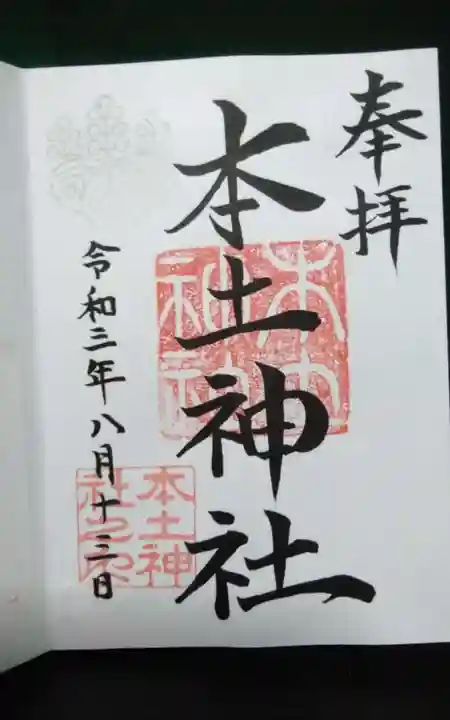 奉拝
本土神社
令和三年八月十三日
本土神
社之印